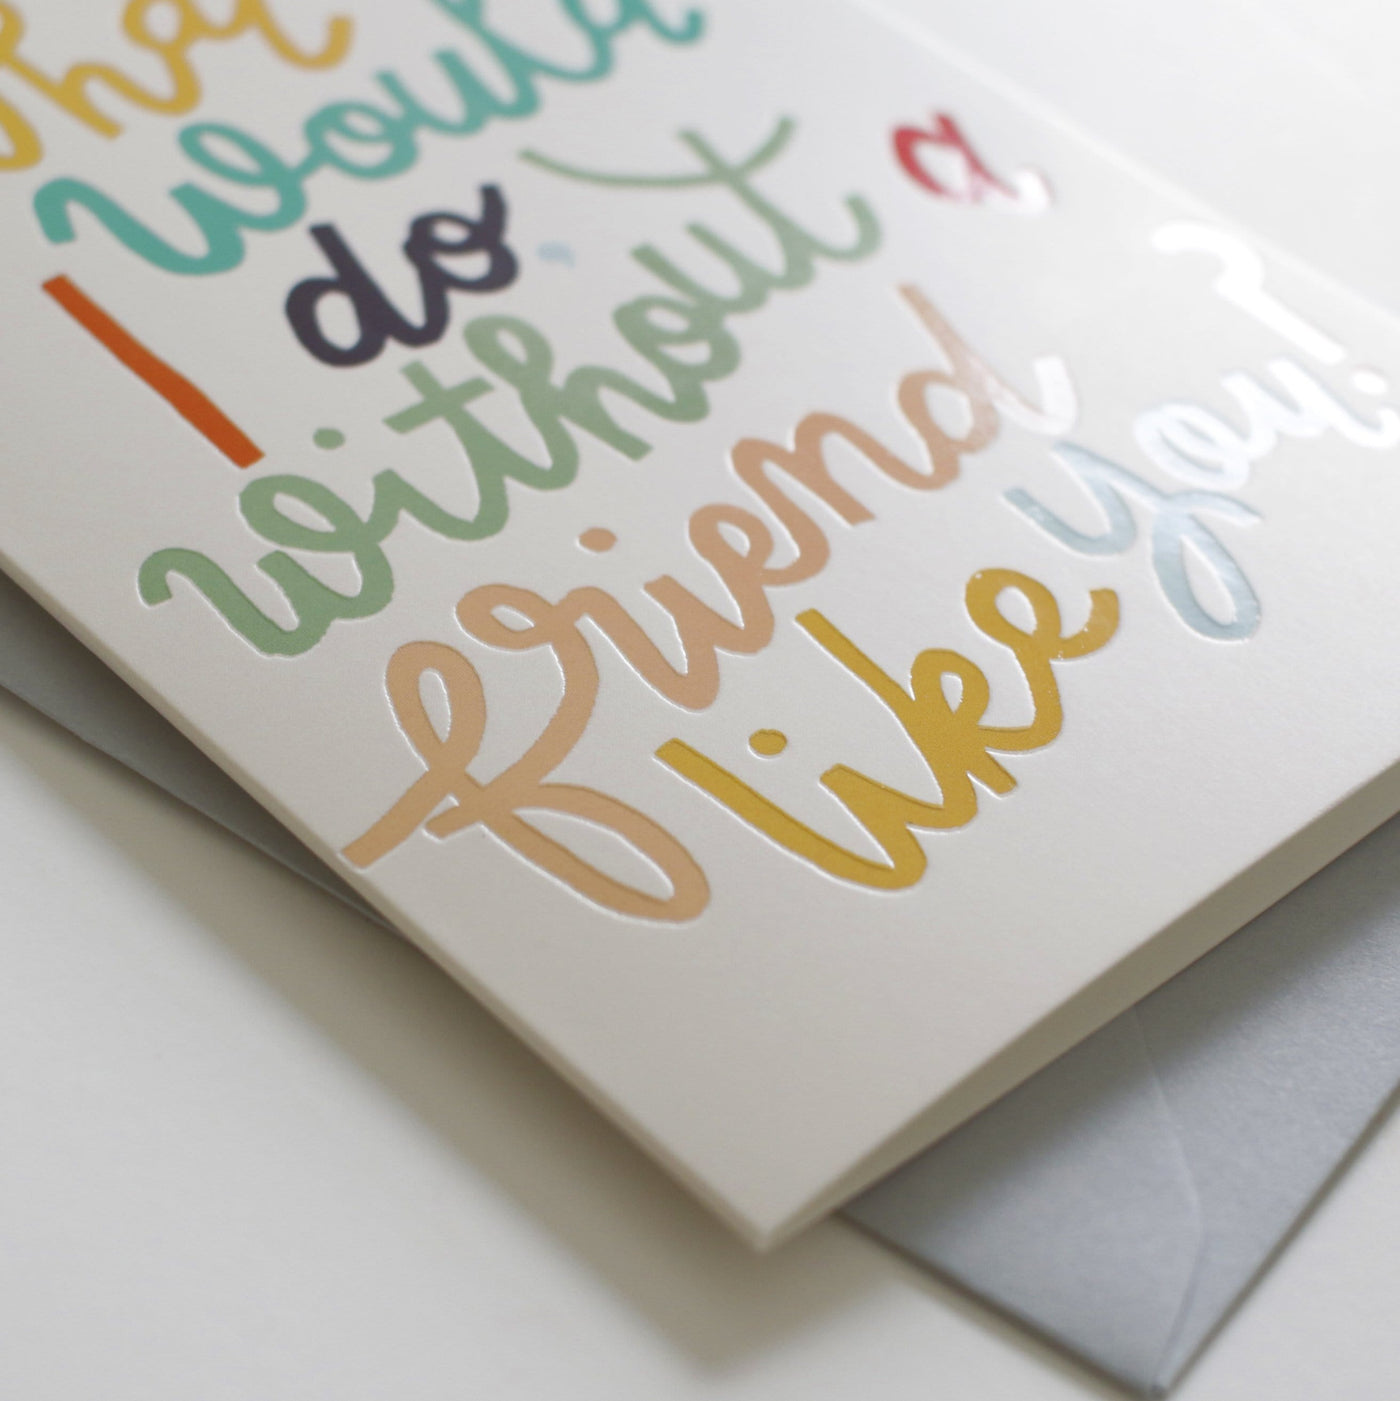 what
would
I do,
without a
friend
like you?